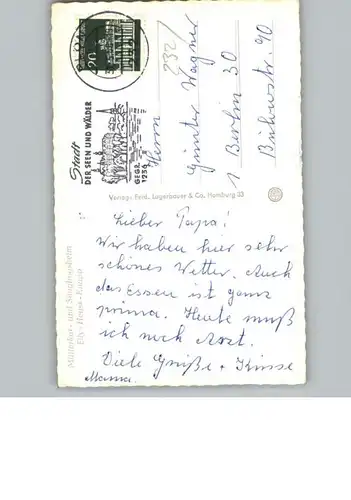 20
Stadt
DER SEEN UND WÄLDER
GEGR.
1236
232/
Herrn
Günter Wagner
1 Berlin 30
Bülowstr. 90
Verlag: Ferd. Lagerbauer & Co. Hamburg 23
Mütterkur- und Säuglingsheim
Elly-Heuss-Knapp
Lieber Papa!
Wir haben hier sehr
schönes Wetter. Auch
das Essen ist ganz
prima. Heute muß
ich noch Arzt.
Viele Grüße + Küsse
Mama.